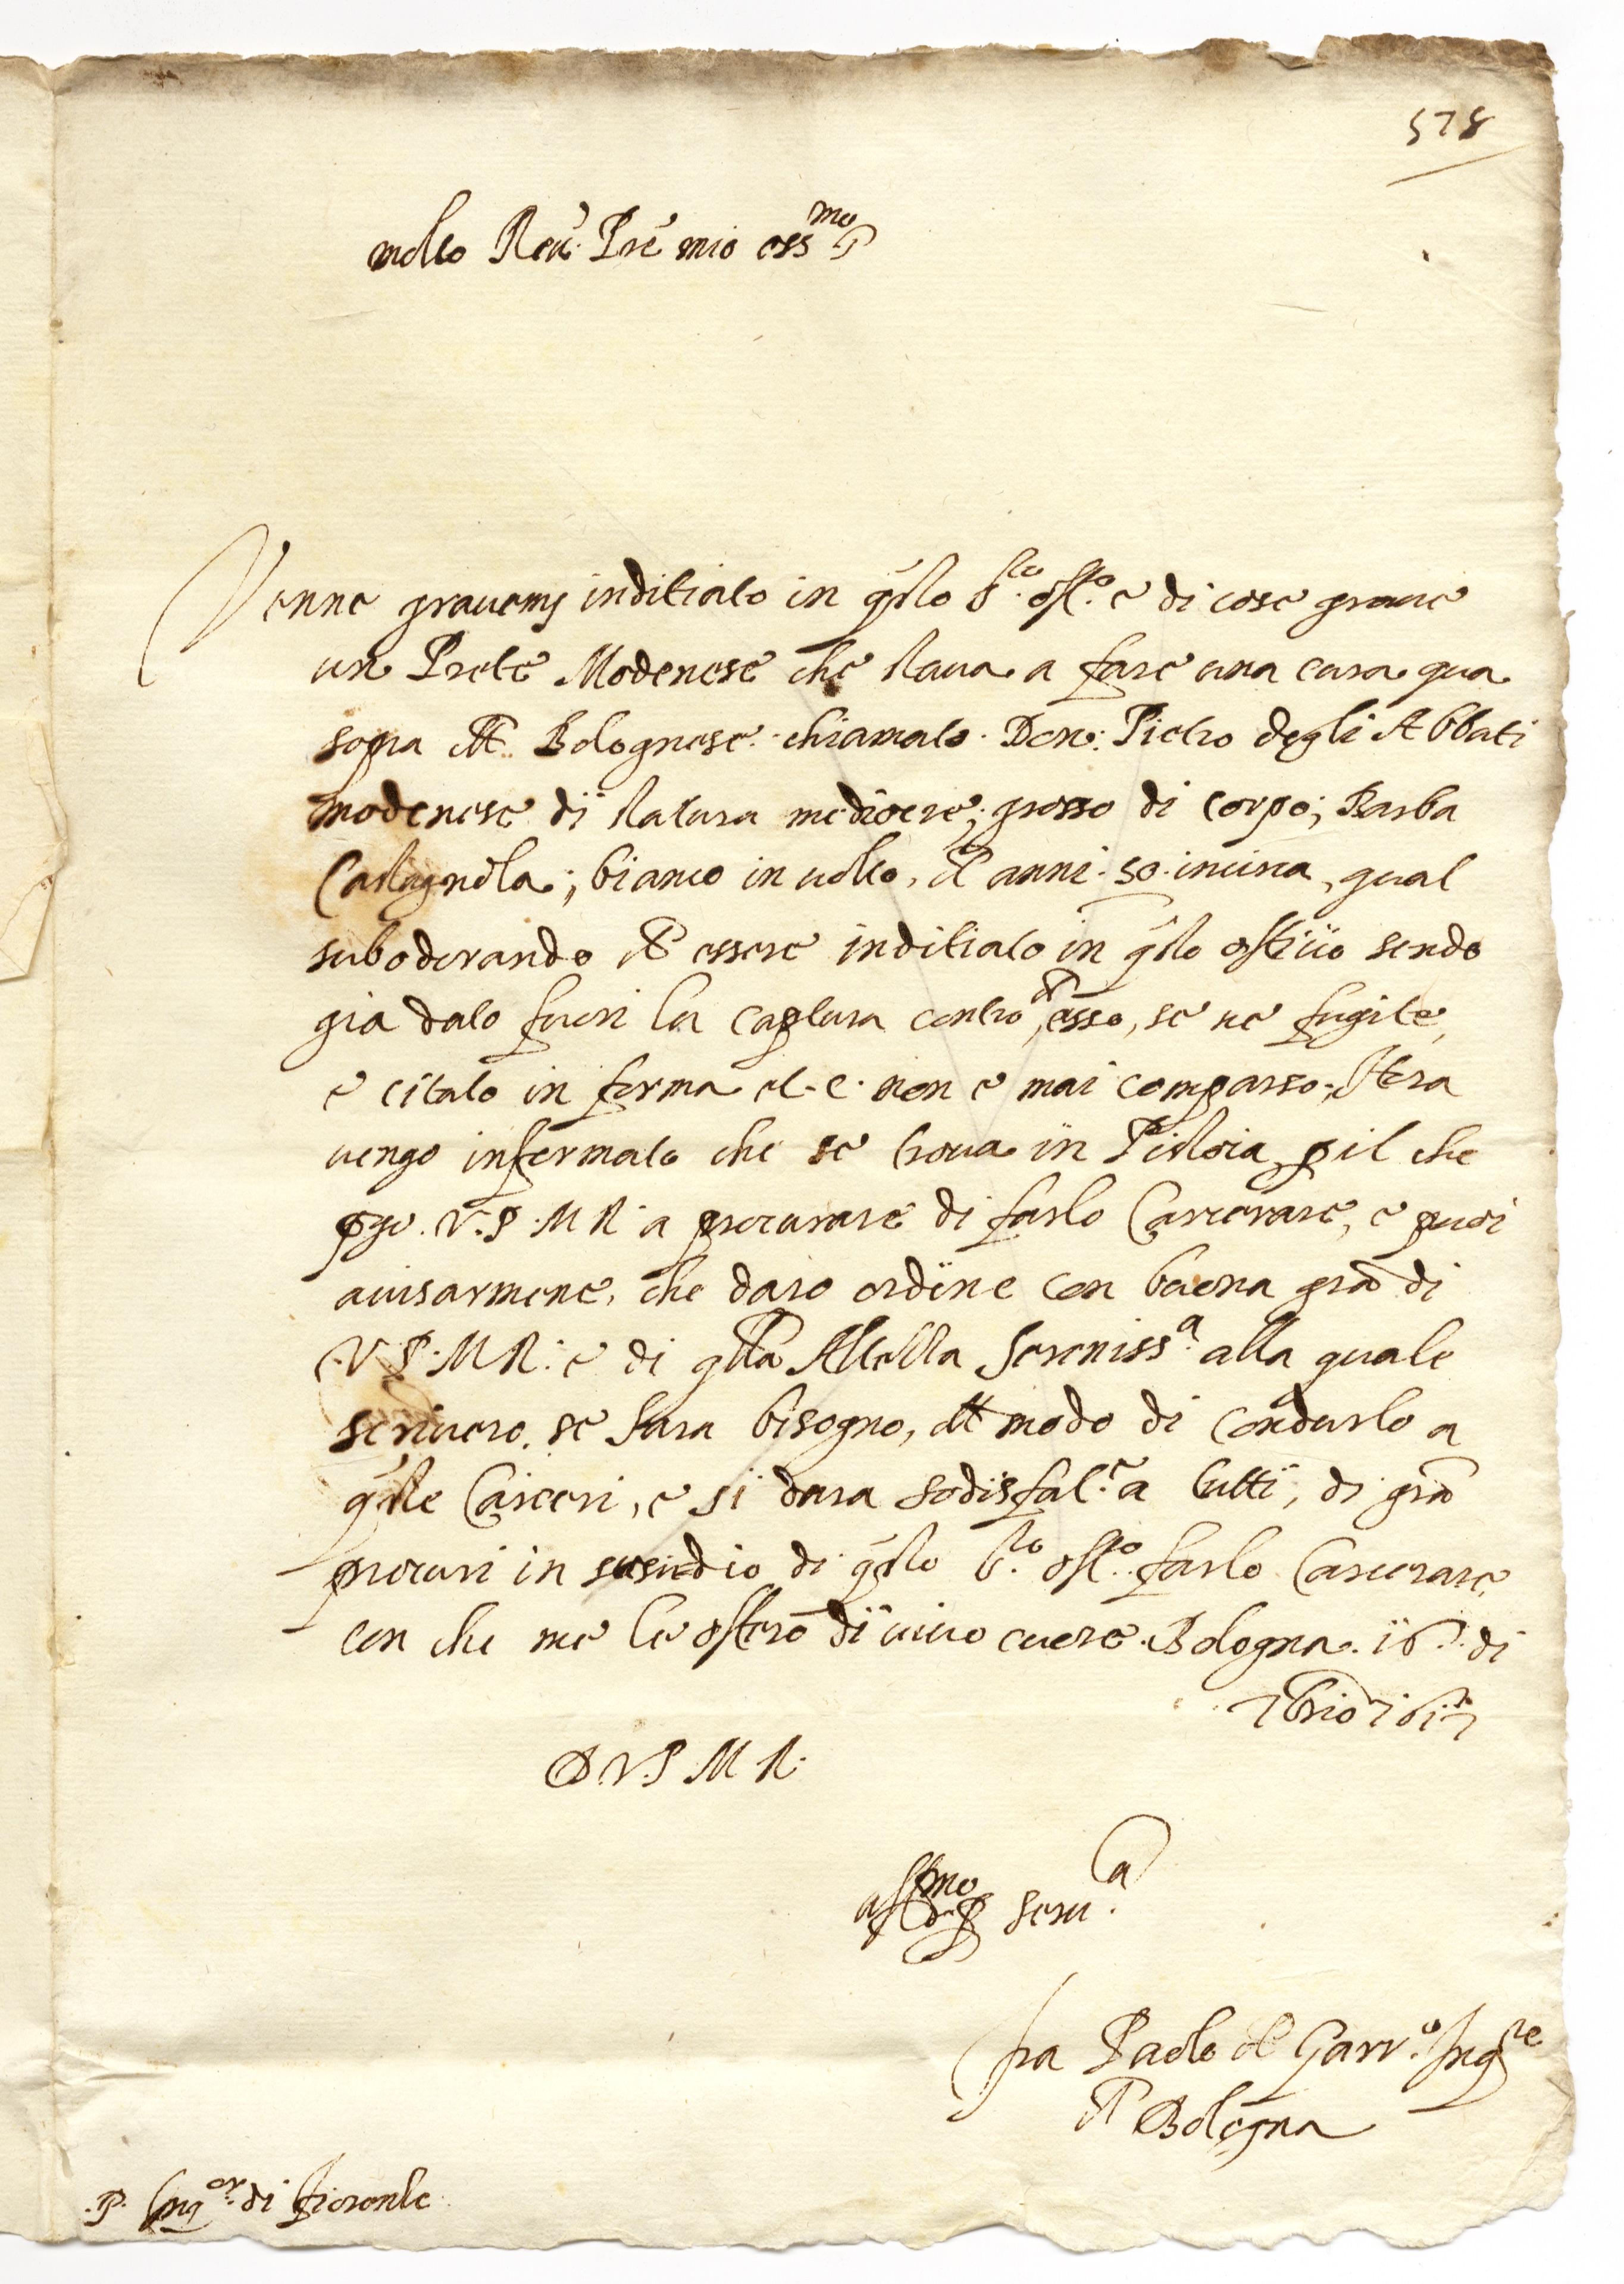 578
molto Reu: Pre mio oss.mo
Venne grauem.te inditiato in q̃sto S.to off.o e di cose graue
un Prete Modenese che staua a fare una cura qua
sopra il Bolognese chiamato Don: Pietro degli Abbati
modenese di statura mediocre; grosso di corpo; Barba
Castagnola; bianco in uolto, di anni 50 incirca, qual
subodorando di essere inditiato in q̃sto offitio sendo
gia dato fuori la captura contro di esso, se ne fugite,
e citato in forma et.c. non e mai comparso; Hora
uengo informato che se troua in Pistoia, p il che
pgo. V.P.M.R. a procurare di farlo Carcerare, e puoi
auisarmene, che daro ordine con buona grã di
V.P.M.R: e di q̃lla Altezza Sereniss.a alla quale
scriuero, se sara bisogno, del modo di condurlo a
q̃ste Carceri, e si dara sodisfat.e a tutti, di grã
procuri in susidio di q̃sto S.to off.o farlo Carcerare,
con che me le offero di uiuo cuore. Bologna. 16. di
7brio 1617
D.V.P.M.R.
aff.mo Seru.
fra Paolo de Garr.o Inq.re
di Bologna
.P. Inq.or di Fiorenle